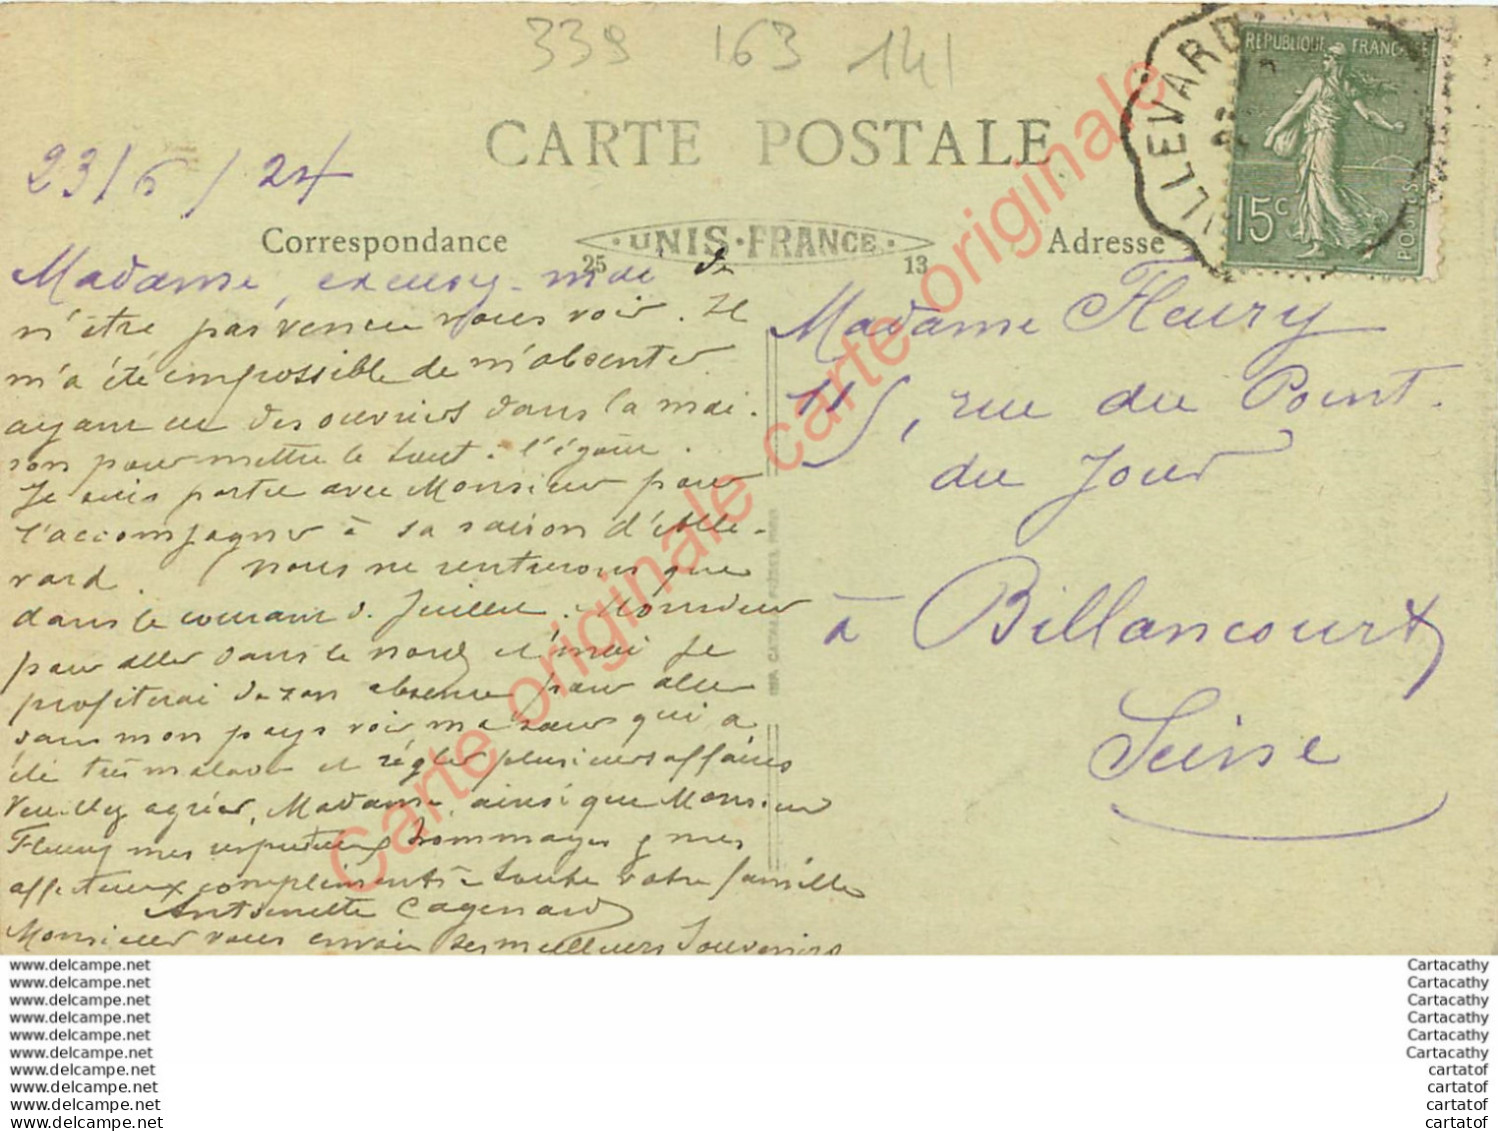 339 163 141
CARTE POSTALE
23/6/24
Correspondance
UNIS-FRANCE
25
13
Adresse
ALLEVARD
RÉPUBLIQUE FRANÇAISE
15c
POSTES
Madame, excusez-moi de
n'être pas venue vous voir. Il
m'a été impossible de m'absenter
ayant eu des ouvriers dans la mai-
son pour mettre le tout à l'égout.
Je suis partie avec Monsieur pour
l'accompagner à sa saison d'Alle-
vard. Nous ne rentrerons que
dans le courant d. Juillet. Monsieur
pour aller dans le nord et moi je
profiterai de son absence pour aller
dans mon pays voir ma sœur qui a
été très malade et régler plusieurs affaires
Veuillez agréer, Madame, ainsi que Monsieur
Fleury mes respectueux hommages & mes
affectueux compliments à toute votre famille
Antoinette Cagenard
Monsieur vous envoie ses meilleurs Souvenirs
Madame Fleury
115, rue du Point-
du Jour
à Billancourt
Seine
Carte originale carte originale carte originale
www.delcampe.net
www.delcampe.net
www.delcampe.net
www.delcampe.net
www.delcampe.net
www.delcampe.net
www.delcampe.net
www.delcampe.net
www.delcampe.net
www.delcampe.net
Cartacathy
Cartacathy
Cartacathy
Cartacathy
Cartacathy
Cartacathy
cartatof
cartatof
cartatof
cartatof